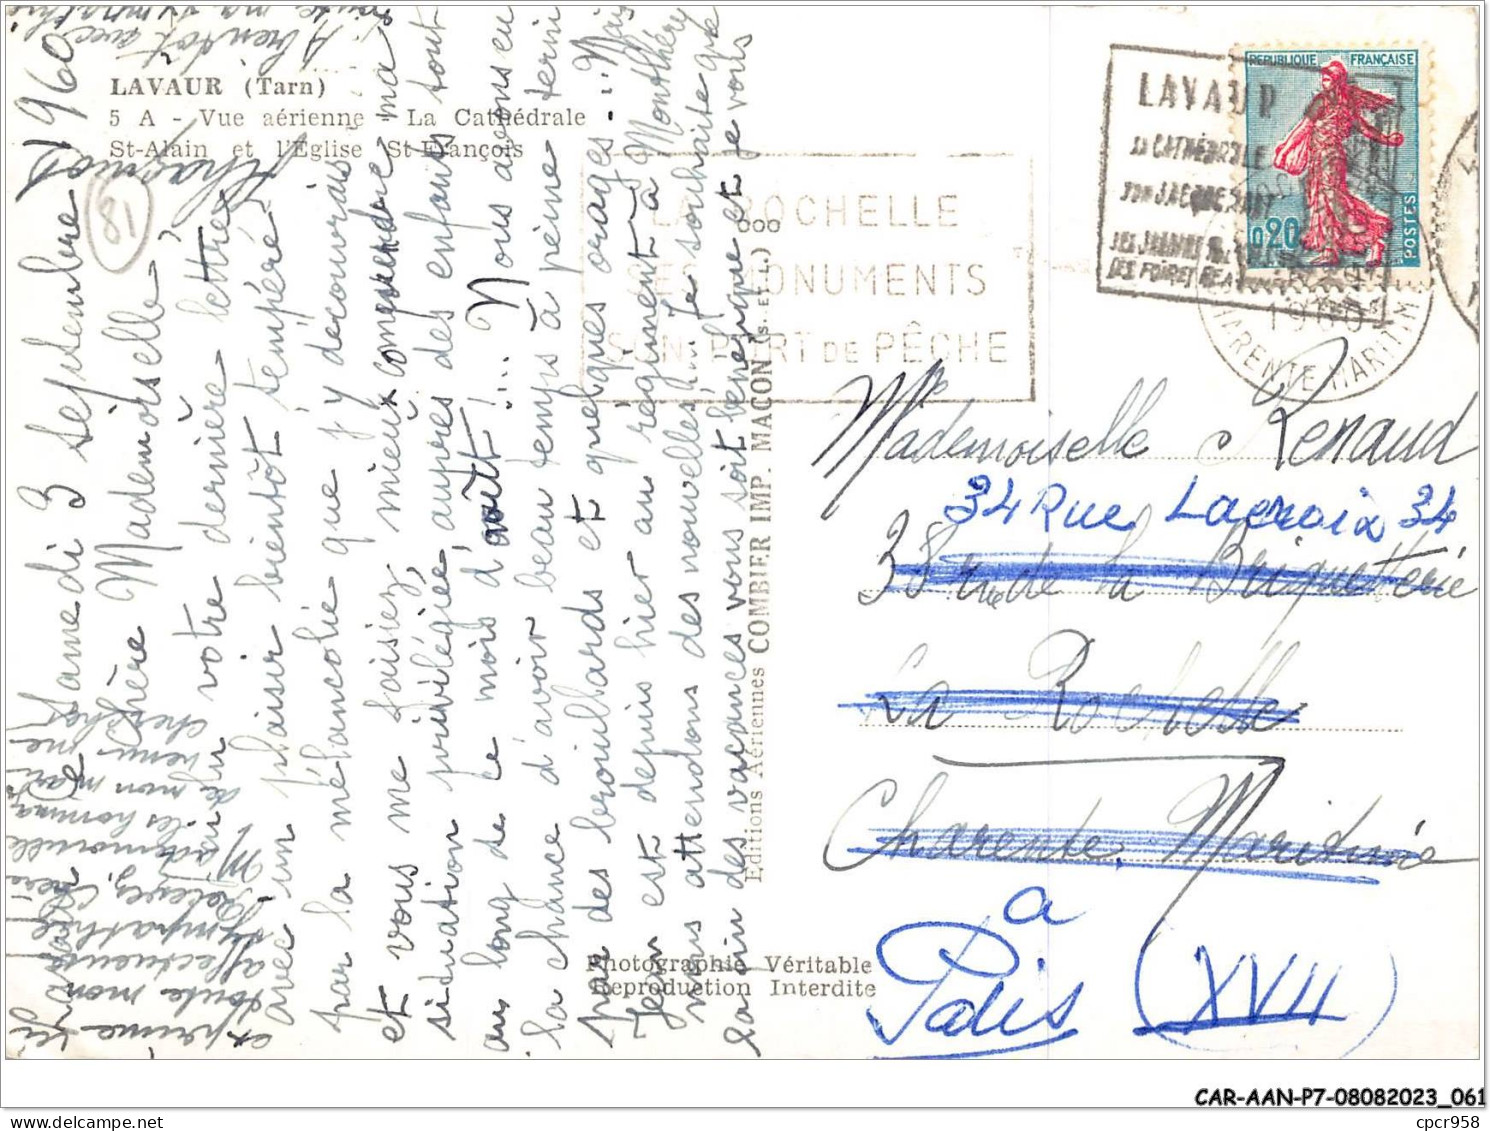 LAVAUR (Tarn)
5 A - Vue aérienne - La Cathédrale
St-Alain et l'Eglise St-François
81
Samedi 3 septembre 1960
Chère Mademoiselle,
J'ai lu votre dernière lettre
avec un plaisir bientôt tempéré
par la mélancolie que j'y découvrais
et vous me faisiez mieux comprendre ma
situation privilégiée, auprès des enfants tout
au long de le mois d'août!... Nous avons eu
la chance d'avoir beau temps à peine terni
par des brouillards et quelques orages... Mais
Jean est depuis hier au régiment à Montlhéry
nous attendons des nouvelles!... Je souhaite que
la fin des vacances vous soit bénéfique et je vous
exprime ici
toute mon
affectueuse
sympathie
Mademoiselle
les hommages
de mon mari
A bientôt avec
Editions Aériennes COMBIER IMP. MACON (S.-et-L.)
Photographie Véritable
Reproduction Interdite
LA ROCHELLE
SES MONUMENTS
SON PORT DE PÊCHE
LAVAUR
SA CATHÉDRALE
SON JACQUEMART
REPUBLIQUE FRANÇAISE
0,20
POSTES
CHARENTE MARITIME
Mademoiselle Renaud
34 Rue Lacroix 34
38 rue de la Briquetterie
La Rochelle
Charente Maritime
a
Paris (XVII)
CAR-AAN-P7-08082023_061
cpcr958